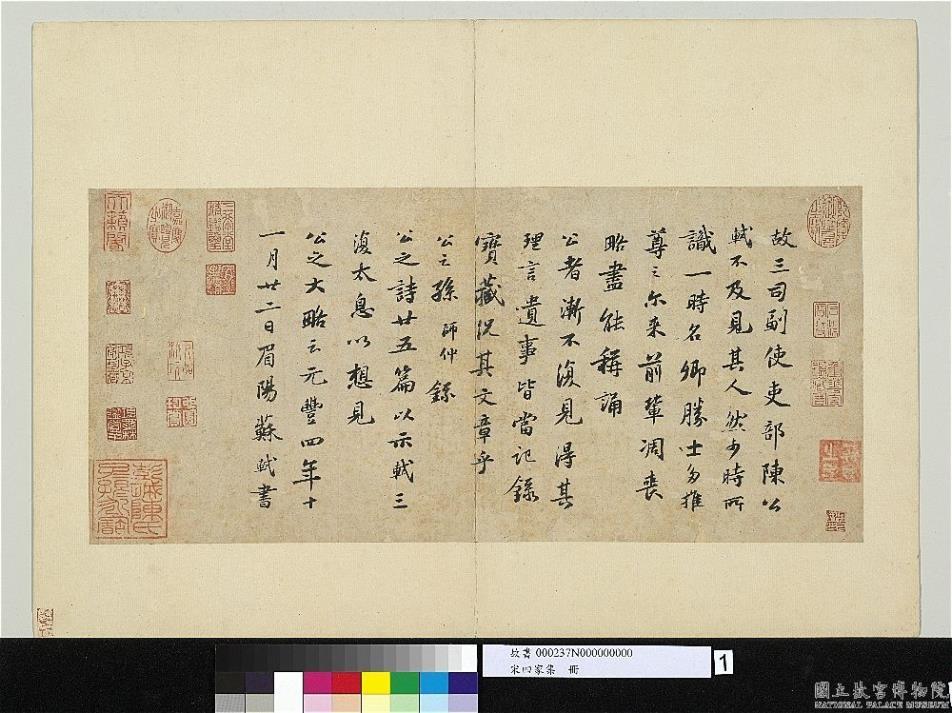 故三司副使吏部陳公
軾不及見其人然少時所
識一時名卿勝士多推
尊之尓来前輩凋喪
略盡能稱誦
公者漸不復見得其
理言遺事皆當記錄
寶藏況其文章乎
公之孫師仲錄
公之詩廿五篇以示軾三
復太息以想見
公之大略云元豐四年十
一月廿二日眉陽蘇軾書
彭城陳氏
故書 000237N000000000
宋四家集 冊
1
國立故宮博物院
NATIONAL PALACE MUSEUM